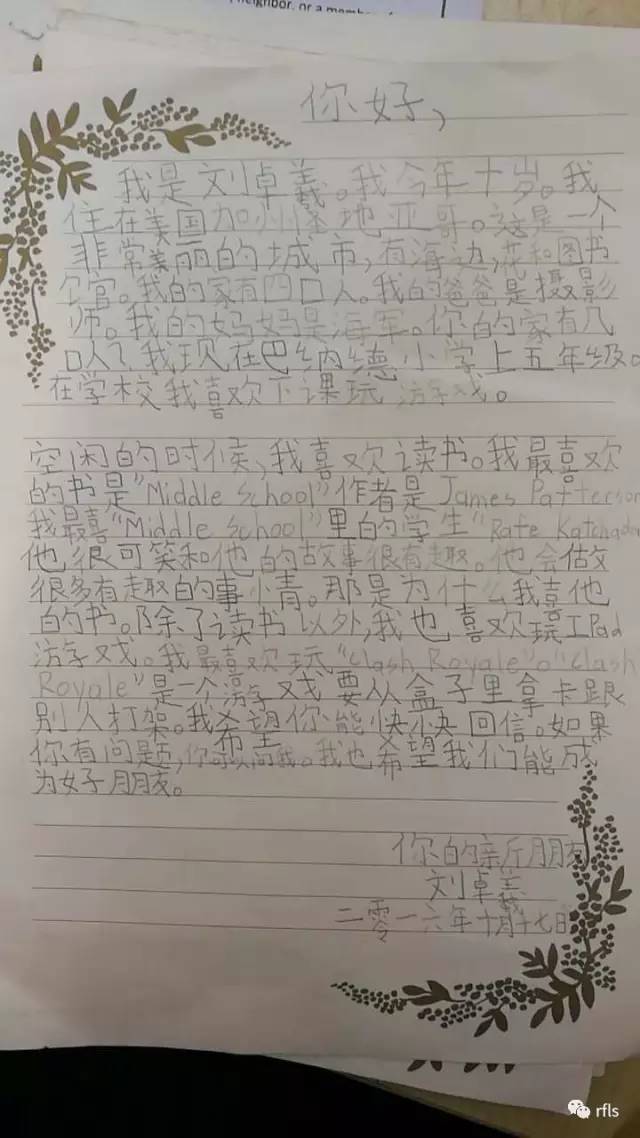 neighbor, or a member
你好，
我是刘卓義。我今年十岁。我
住在美国加州圣地亚哥。这是一个
非常美丽的城市，有海边，花和图书
官。我的家有四口人。我的爸爸是摄影
师。我的妈妈是海军。你的家有几
口人？我现在巴纳德小学上五年级。
在学校我喜欢下课玩 游戏。
空闲的时候，我喜欢读书。我最喜欢
的书是"Middle School"作者是James Patterson
我最喜"Middle School"里的学生"Rafe Katchada
他很可笑和他的故事很有趣。他会做
很多有趣的事情。那是为什么我喜他
的书。除了读书以外，我也喜欢玩IPad
游戏。我最喜欢玩"Clash Royale"。"Clash
Royale"是一个游戏要从盒子里拿卡跟
别人打架。我希望你能快快回信。如果
你有问题，你可以问我。我也希望我们能成
为好朋友。
你的新朋友
刘卓義
二零一六年十月十七日
rfls